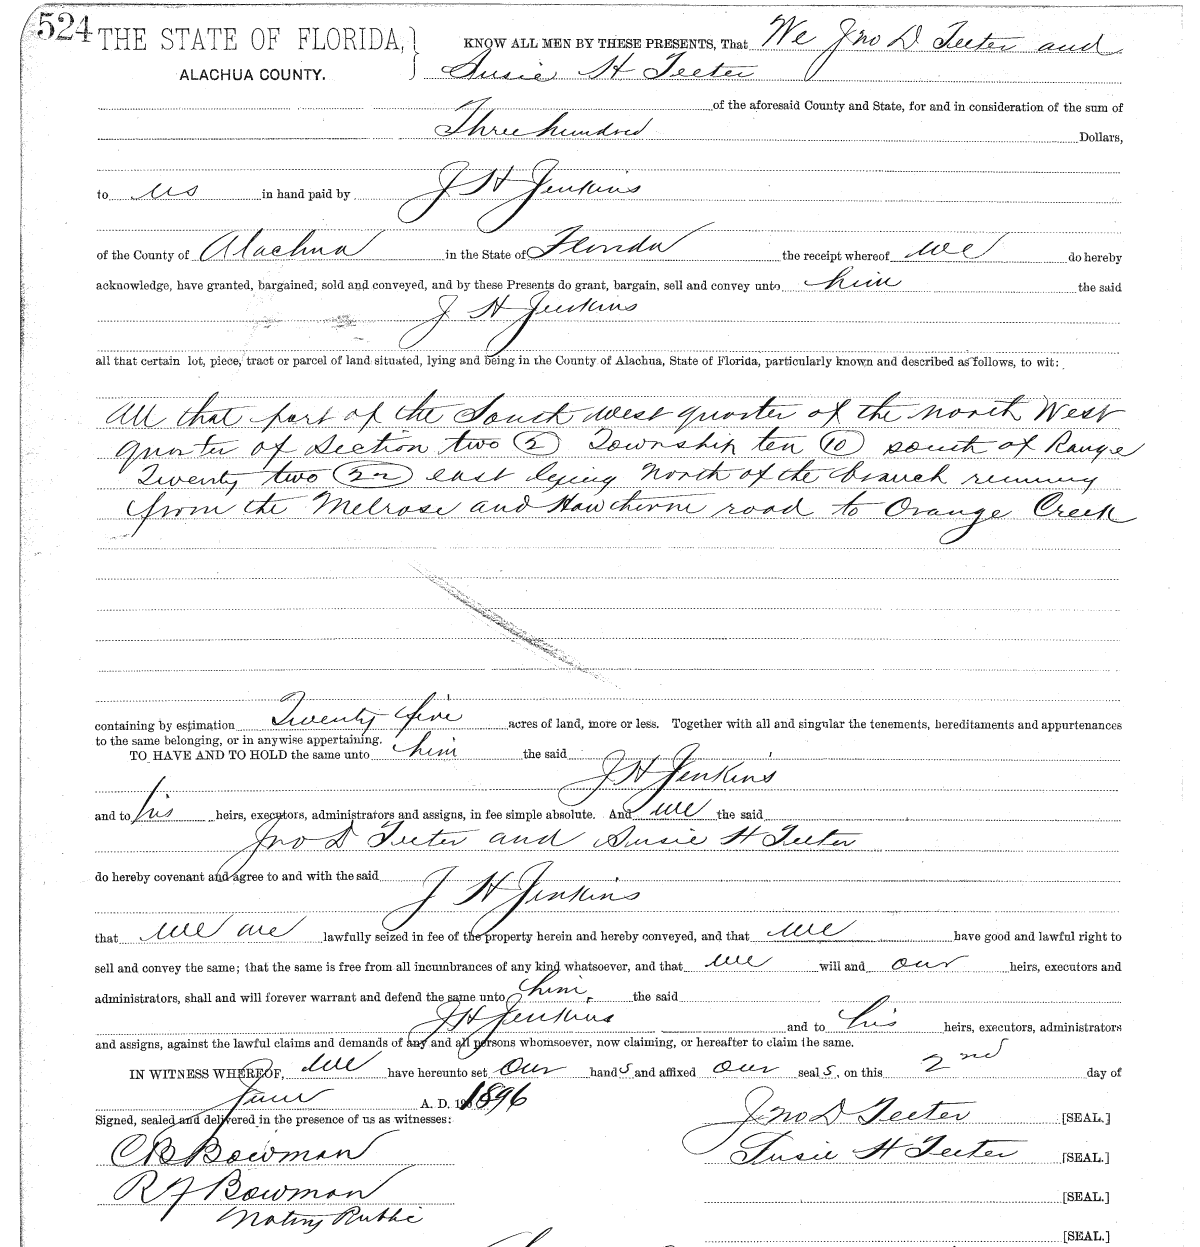 524
THE STATE OF FLORIDA, } KNOW ALL MEN BY THESE PRESENTS, That We Jno D Teeter and
ALACHUA COUNTY. Susie H Teeter
of the aforesaid County and State, for and in consideration of the sum of
Three hundred Dollars,
to us in hand paid by J H Jenkins
of the County of Alachua in the State of Florida the receipt whereof we do hereby
acknowledge, have granted, bargained, sold and conveyed, and by these Presents do grant, bargain, sell and convey unto him the said
J H Jenkins
all that certain lot, piece, tract or parcel of land situated, lying and being in the County of Alachua, State of Florida, particularly known and described as follows, to wit:
All that part of the South west quarter of the north West
quarter of Section two (2) Township ten (10) south of Range
Twenty two (22) east lying North of the branch running
from the Melrose and Hawthorne road to Orange Creek
containing by estimation Twenty five acres of land, more or less. Together with all and singular the tenements, hereditaments and appurtenances
to the same belonging, or in anywise appertaining.
TO HAVE AND TO HOLD the same unto him the said
J H Jenkins
and to his heirs, executors, administrators and assigns, in fee simple absolute. And we the said
Jno D Teeter and Susie H Teeter
do hereby covenant and agree to and with the said J H Jenkins
that we are lawfully seized in fee of the property herein and hereby conveyed, and that we have good and lawful right to
sell and convey the same; that the same is free from all incumbrances of any kind whatsoever, and that we will and our heirs, executors and
administrators, shall and will forever warrant and defend the same unto him the said
J H Jenkins and to his heirs, executors, administrators
and assigns, against the lawful claims and demands of any and all persons whomsoever, now claiming, or hereafter to claim the same.
IN WITNESS WHEREOF, we have hereunto set our hands and affixed our seals, on this 2nd day of
June A. D. 1896
Signed, sealed and delivered in the presence of us as witnesses: Jno D Teeter [SEAL.]
C B Bowman Susie H Teeter [SEAL.]
R F Bowman [SEAL.]
Notary Public
[SEAL.]